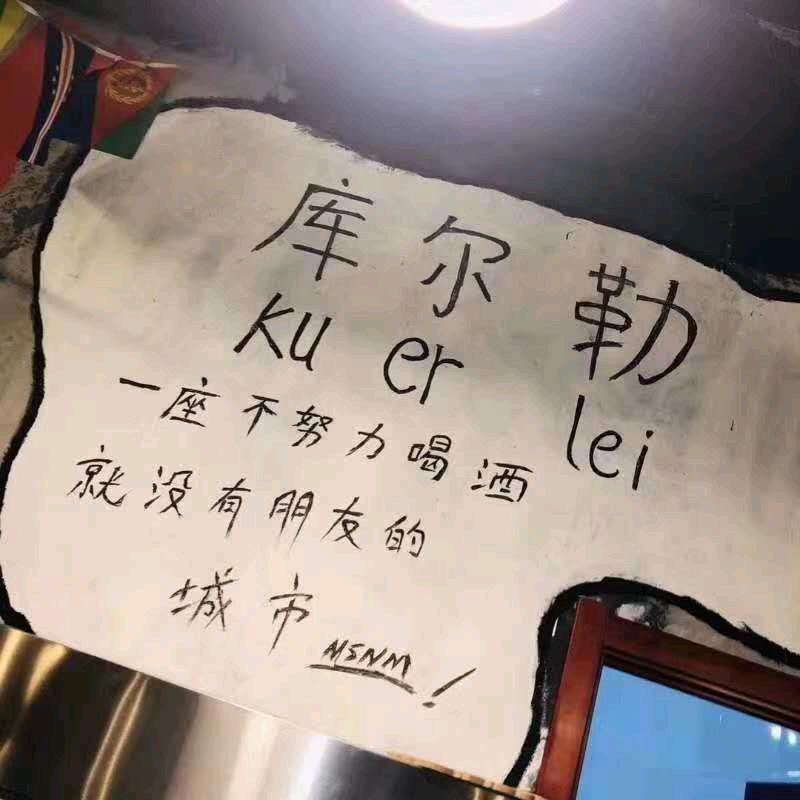 库尔勒
Ku er lei
一座不努力喝酒
就没有朋友的
城市 MSNM!